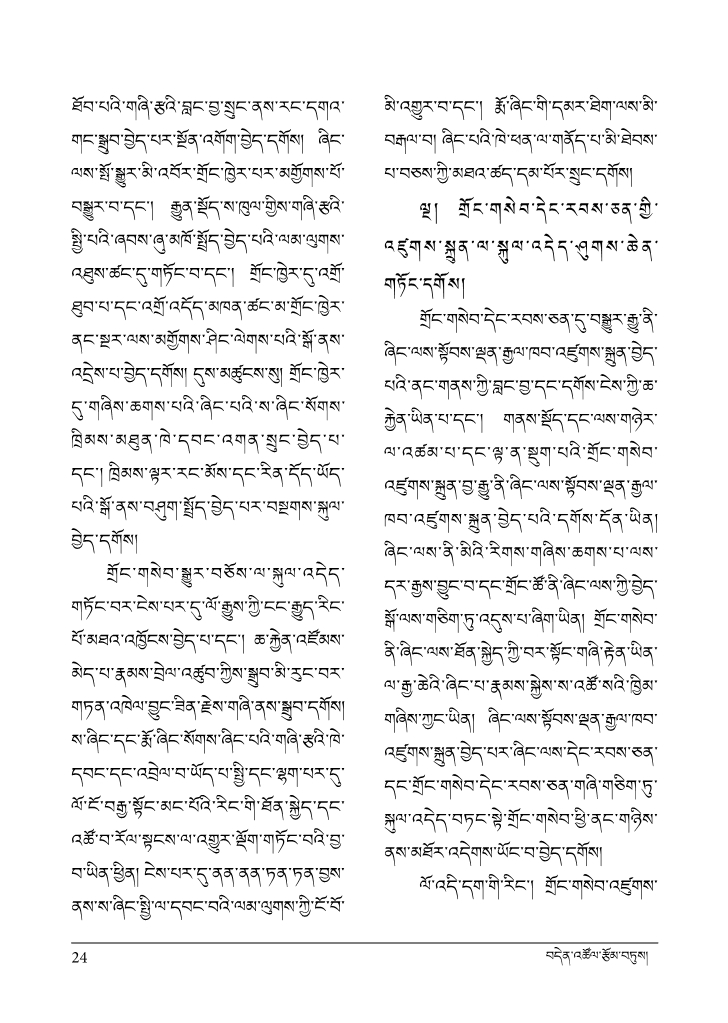 ཐོབ་པའི་གཞི་རྩའི་བླང་བྱ་སྲུང་ནས་རང་དགའ་
གང་སྒྲུབ་བྱེད་པར་སྔོན་འགོག་བྱེད་དགོས། ཞིང་
ལས་སྤོ་སྒྱུར་མི་འབོར་གྲོང་ཁྱེར་པར་མགྱོགས་པོ་
བསྒྱུར་བ་དང་། རྒྱུན་སྡོད་ས་ཁུལ་གྱིས་གཞི་རྩའི་
སྤྱི་པའི་ཞབས་ཞུ་མཁོ་སྤྲོད་བྱེད་པའི་ལམ་ལུགས་
འཐུས་ཚང་དུ་གཏོང་བ་དང་། གྲོང་ཁྱེར་དུ་འགྲོ་
ཐུབ་པ་དང་འགྲོ་འདོད་མཁན་ཚང་མ་གྲོང་ཁྱེར་
ནང་སྔར་ལས་མགྱོགས་ཤིང་ལེགས་པའི་སྒོ་ནས་
འདྲེས་པ་བྱེད་དགོས། དུས་མཚུངས་སུ། གྲོང་ཁྱེར་
དུ་གཞིས་ཆགས་པའི་ཞིང་པའི་ས་ཞིང་སོགས་
ཁྲིམས་མཐུན་ཁེ་དབང་འགན་སྲུང་བྱེད་པ་
དང་། ཁྲིམས་ལྟར་རང་མོས་དང་རིན་དོད་ཡོད་
པའི་སྒོ་ནས་བཤུག་སྤྲོད་བྱེད་པར་བསྔགས་སྐུལ་
བྱེད་དགོས།
གྲོང་གསེབ་སྒྱུར་བཅོས་ལ་སྐུལ་འདེད་
གཏོང་བར་ངེས་པར་དུ་ལོ་རྒྱུས་ཀྱི་ངང་རྒྱུད་རིང་
པོ་མཐའ་འཁྱོངས་བྱེད་པ་དང་། ཆ་རྐྱེན་འཛོམས་
མེད་པ་རྣམས་བྲེལ་འཚུབ་ཀྱིས་སྒྲུབ་མི་རུང་བར་
གཏན་འཁེལ་བྱུང་ཟིན་རྗེས་གཞི་ནས་སྒྲུབ་དགོས།
ས་ཞིང་དང་རྨོ་ཞིང་སོགས་ཞིང་པའི་གཞི་རྩའི་ཁེ་
དབང་དང་འབྲེལ་བ་ཡོད་པ་སྤྱི་དང་ལྷག་པར་དུ་
ལོ་ངོ་བརྒྱ་སྟོང་མང་པོའི་རིང་གི་ཐོན་སྐྱེད་དང་
འཚོ་བ་རོལ་སྟངས་ལ་འགྱུར་ལྡོག་གཏོང་བའི་བྱ་
བ་ཡིན་ཕྱིན། ངེས་པར་དུ་ནན་ནན་ཏན་ཏན་བྱས་
ནས་ས་ཞིང་སྤྱི་ལ་དབང་བའི་ལམ་ལུགས་ཀྱི་ངོ་བོ་
མི་འགྱུར་བ་དང་། རྨོ་ཞིང་གི་དམར་ཐིག་ལས་མི་
བརྒལ་བ། ཞིང་པའི་ཁེ་ཕན་ལ་གནོད་པ་མི་ཐེབས་
པ་བཅས་ཀྱི་མཐའ་ཚད་དམ་པོར་སྲུང་དགོས།
ལྔ། གྲོང་གསེབ་དེང་རབས་ཅན་གྱི་
འཛུགས་སྐྲུན་ལ་སྐུལ་འདེད་ཤུགས་ཆེན་
གཏོང་དགོས།
གྲོང་གསེབ་དེང་རབས་ཅན་དུ་བསྒྱུར་རྒྱུ་ནི་
ཞིང་ལས་སྟོབས་ལྡན་རྒྱལ་ཁབ་འཛུགས་སྐྲུན་བྱེད་
པའི་ནང་གནས་ཀྱི་བླང་བྱ་དང་དགོས་ངེས་ཀྱི་ཆ་
རྐྱེན་ཡིན་པ་དང་། གནས་སྡོད་དང་ལས་གཉེར་
ལ་འཚམ་པ་དང་ལྟ་ན་སྡུག་པའི་གྲོང་གསེབ་
འཛུགས་སྐྲུན་བྱ་རྒྱུ་ནི་ཞིང་ལས་སྟོབས་ལྡན་རྒྱལ་
ཁབ་འཛུགས་སྐྲུན་བྱེད་པའི་དགོས་དོན་ཡིན།
ཞིང་ལས་ནི་མིའི་རིགས་གཞིས་ཆགས་པ་ལས་
དར་རྒྱས་བྱུང་བ་དང་གྲོང་ཚོ་ནི་ཞིང་ལས་ཀྱི་བྱེད་
སྒོ་ལས་གཅིག་ཏུ་འདུས་པ་ཞིག་ཡིན། གྲོང་གསེབ་
ནི་ཞིང་ལས་ཐོན་སྐྱེད་ཀྱི་བར་སྟོང་གཞི་རྟེན་ཡིན་
ལ་རྒྱ་ཆེའི་ཞིང་པ་རྣམས་སྐྱེས་ས་འཚོ་སའི་ཁྱིམ་
གཞིས་ཀྱང་ཡིན། ཞིང་ལས་སྟོབས་ལྡན་རྒྱལ་ཁབ་
འཛུགས་སྐྲུན་བྱེད་པར་ཞིང་ལས་དེང་རབས་ཅན་
དང་གྲོང་གསེབ་དེང་རབས་ཅན་གཞི་གཅིག་ཏུ་
སྐུལ་འདེད་བཏང་སྟེ་གྲོང་གསེབ་ཕྱི་ནང་གཉིས་
ནས་མཐོར་འདེགས་ཡོང་བ་བྱེད་དགོས།
ལོ་འདི་དག་གི་རིང་། གྲོང་གསེབ་འཛུགས་
24
བདེན་འཚོལ་རྩོམ་བཏུས།